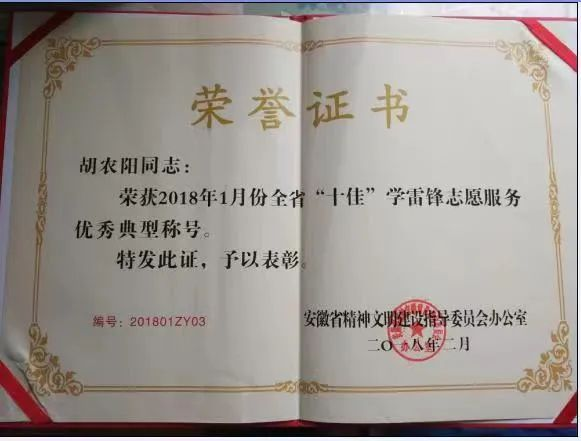 荣誉证书
胡农阳同志：
荣获2018年1月份全省“十佳”学雷锋志愿服务
优秀典型称号。
特发此证，予以表彰。
编号：201801ZY03
安徽省精神文明建设指导委员会办公室
二〇一八年二月
办公室